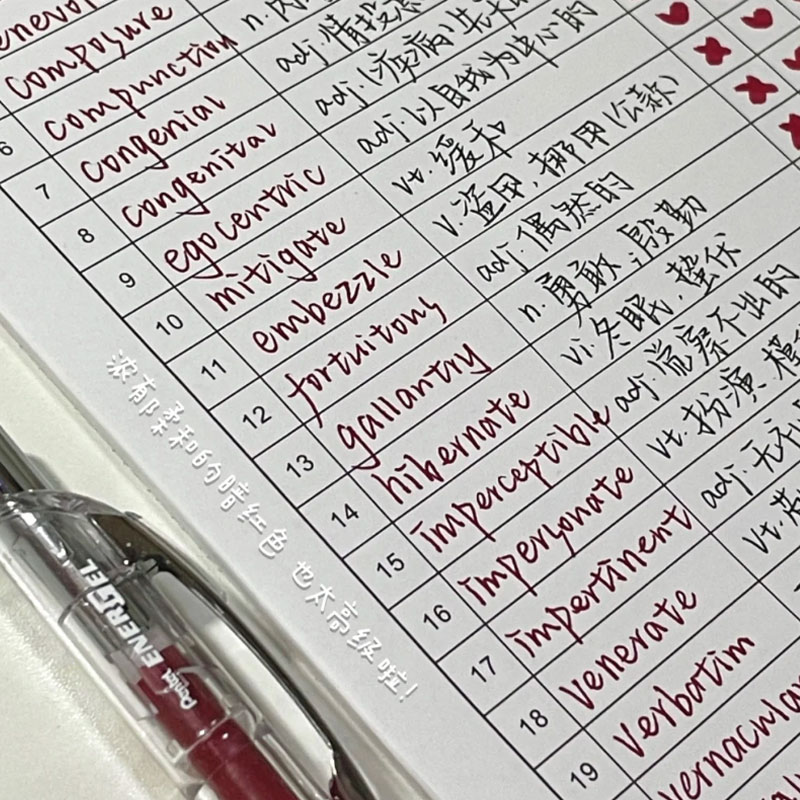 composure
6 compunction n.
7 congenial adj.情投意
8 congenital adj.(疾病)先天
9 egocentric adj.以自我为中心的
10 mitigate vt.缓和
11 embezzle v.盗用,挪用(公款)
12 fortuitous adj.偶然的
13 gallantry n.勇敢;殷勤
14 hibernate vi.冬眠,蛰伏
15 imperceptible adj.觉察不出的
16 impersonate vt.扮演,模
17 impertinent adj.无礼
18 venerate vt.
19 verbatim
浓郁柔和的暗红色 也太高级啦!
Pentel ENERGEL